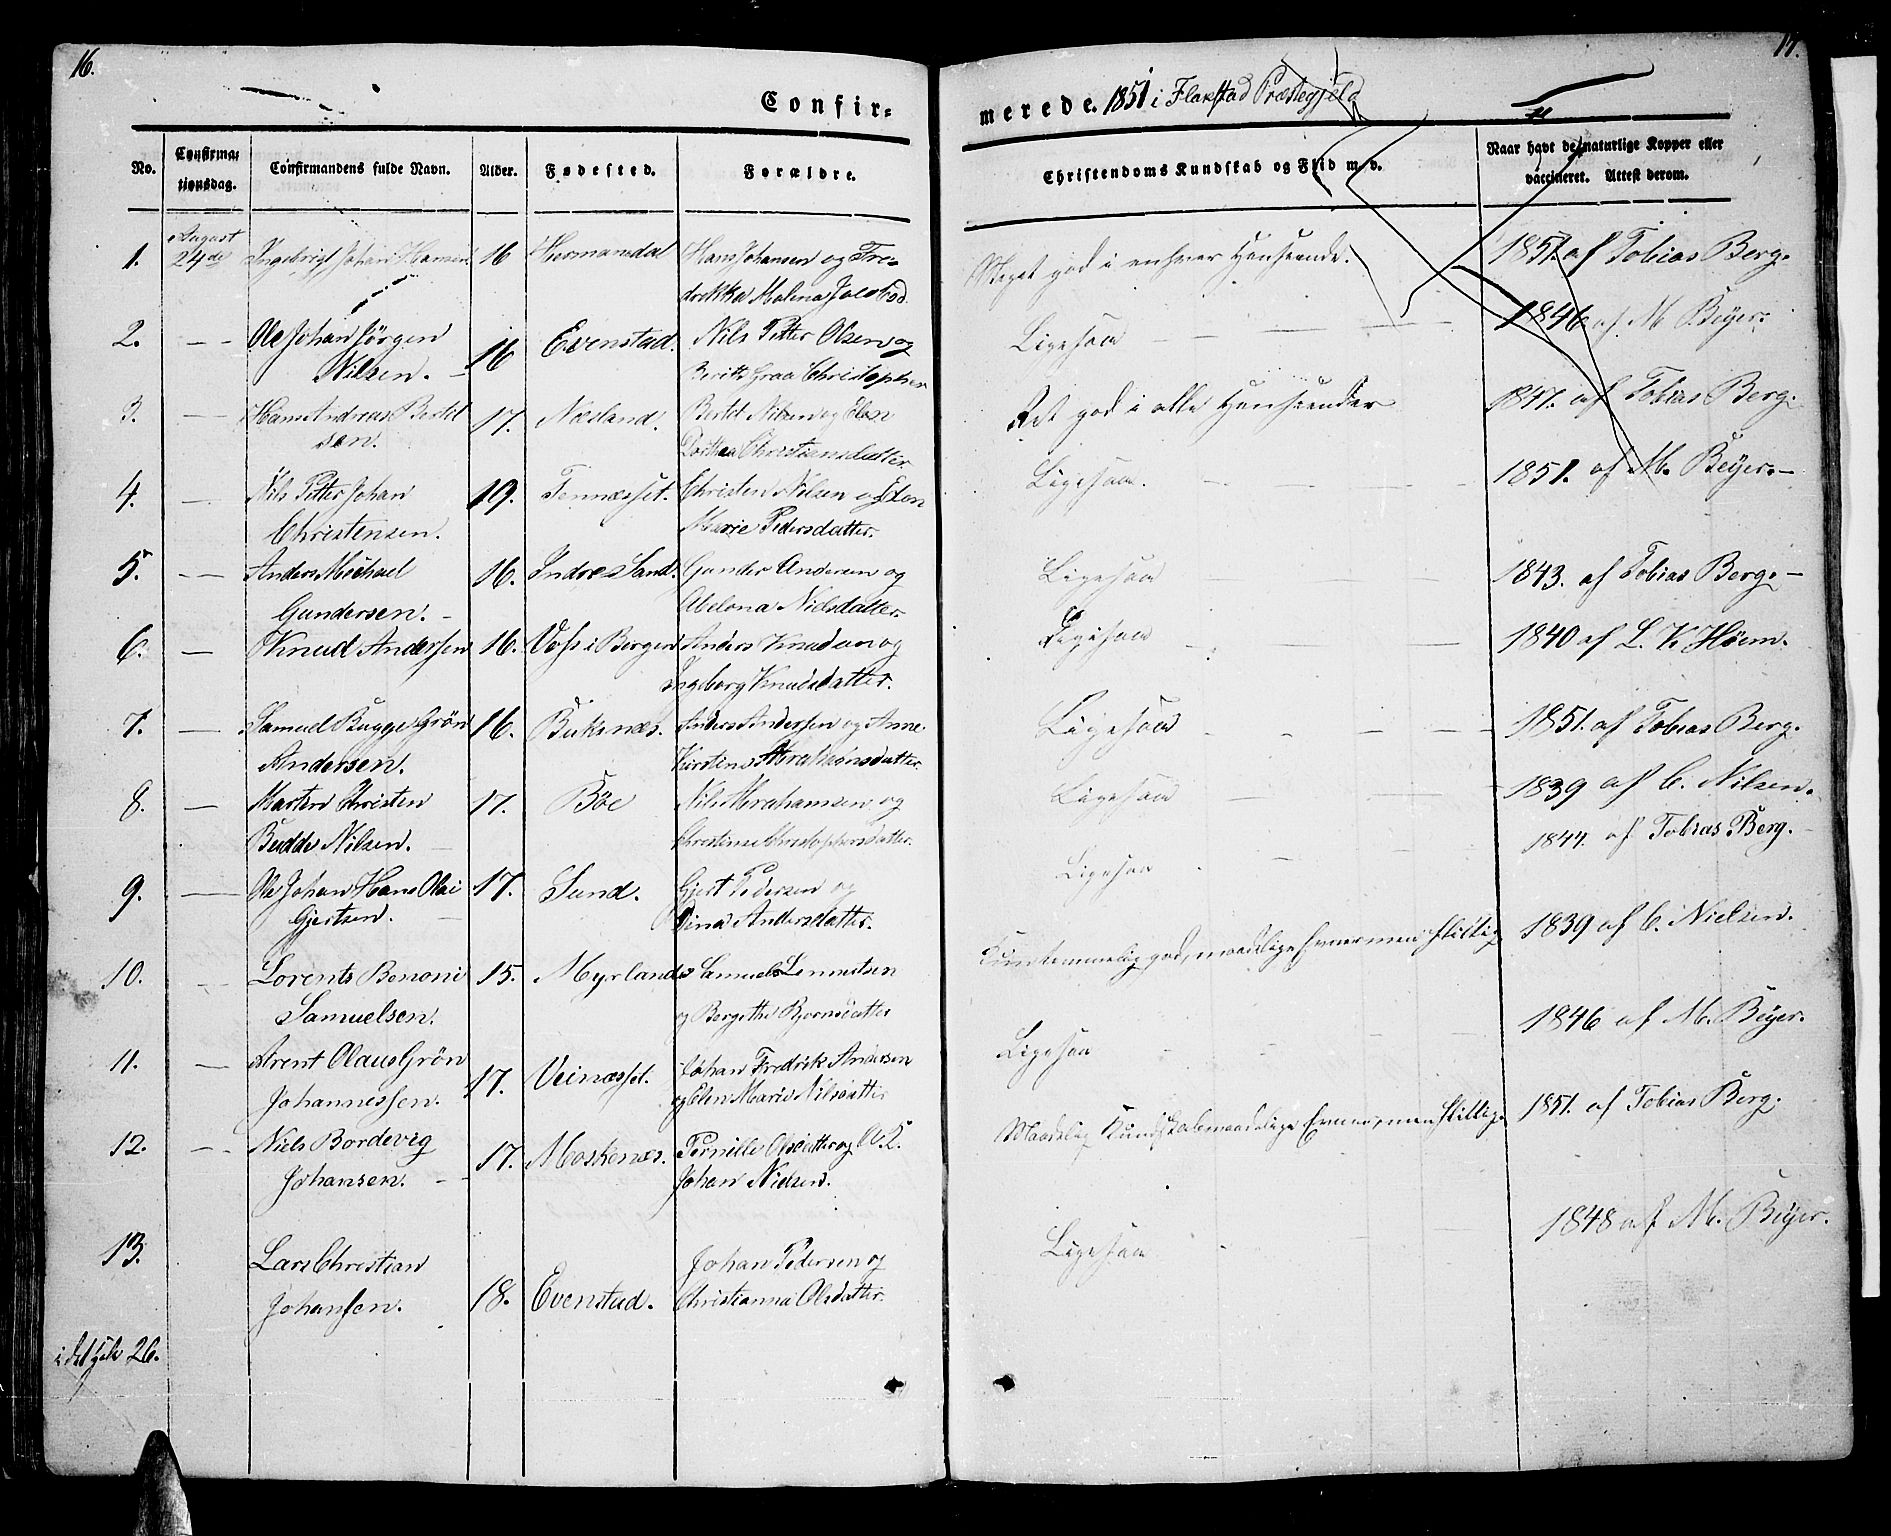 16.
17.
Confir-
merede. 1851 i Flakstad Præstegjeld
No.
Confirmationsdag.
Confirmandens fulde Navn.
Alder.
Fødested.
Forældre.
Christendoms Kundskab og Flid m. v.
Naar havt de naturlige Kopper eller
vaccineret. Attest derom.
1. August 24de Ingebrigt Johan Hansen 16 Hermansdal Hans Johansen og Fre-
drikka Malena Jacobsd.
Meget god i enhver Henseende. 1851 af Tobias Berg.
2. — Ole Johan Jörgen
Nilsen. 16 Evenstad. Nils Petter Olsen og
Berith Graa Christopher
Ligesaa 1846 af M. Beyer.
3. — Hans Andreas Bertel
sen. 17. Næsland. Bertel Nilsen og Elen
Dorthea Christiansdatter
Ret god i alle Henseender 1847. af Tobias Berg.
4. — Nils Petter Johan
Christensen. 19. Tennæsset. Christen Nilsen og Elen
Marie Pedersdatter.
Ligesaa. 1851. af M. Beyer.
5. — Anders Michael
Gundersen. 16. Indre Sand. Gunder Andersen og
Abelona Nielsdatter
Ligesaa 1843. af Tobias Berg.
6. — Knud Anderssen 16. Voss i Bergen Anders Knudsen og
Ingeborg Knudsdatter.
Ligesaa 1840 af L. K. Höem.
7. — Samuel Bugge Grön
Andersen. 16. Buksnæs. Anders Anderssen og Anne
Kirstine Abrahamsdatter.
Ligesaa 1851. af Tobias Berg.
8. — Morten Christen
Budde Nilsen. 17. Böe Nils Abrahamsen og
Christense Christophersdatter.
Ligesaa 1839 af C. Nilsen.
9. — Ole Johan Hans Olai
Gjertsen. 17. Sund. Gjert Pedersen og
Dina Andersdatter.
Ligesaa 1844. af Tobias Berg.
10. — Lorents Benoni
Samuelsen. 15. Myrland Samuel
og Bergethe Bjornsdatter
god, maadelige Evner men flittig 1839 af C. Nielsen.
11. — Arent Olaus Grön
Johannessen. 17. Veinæsset. Johan Fredrik Andersen
og Elen Marie Nilsdatter
Ligesaa 1846 af M. Beyer.
12. — Niels Bordevig
Johansen. 17. Moskenæs. Pernille Olsdatter og
Johan Nielsen.
Maadelig Kundskab maadelige Evner, men flittig. 1851. af Tobias Berg.
13. Lars Christian
Johansen. 18. Evenstad. Johan Pedersen og
Christianna Olsdatter.
Ligesaa 1848 af M. Beyer.
i det Hele 26.